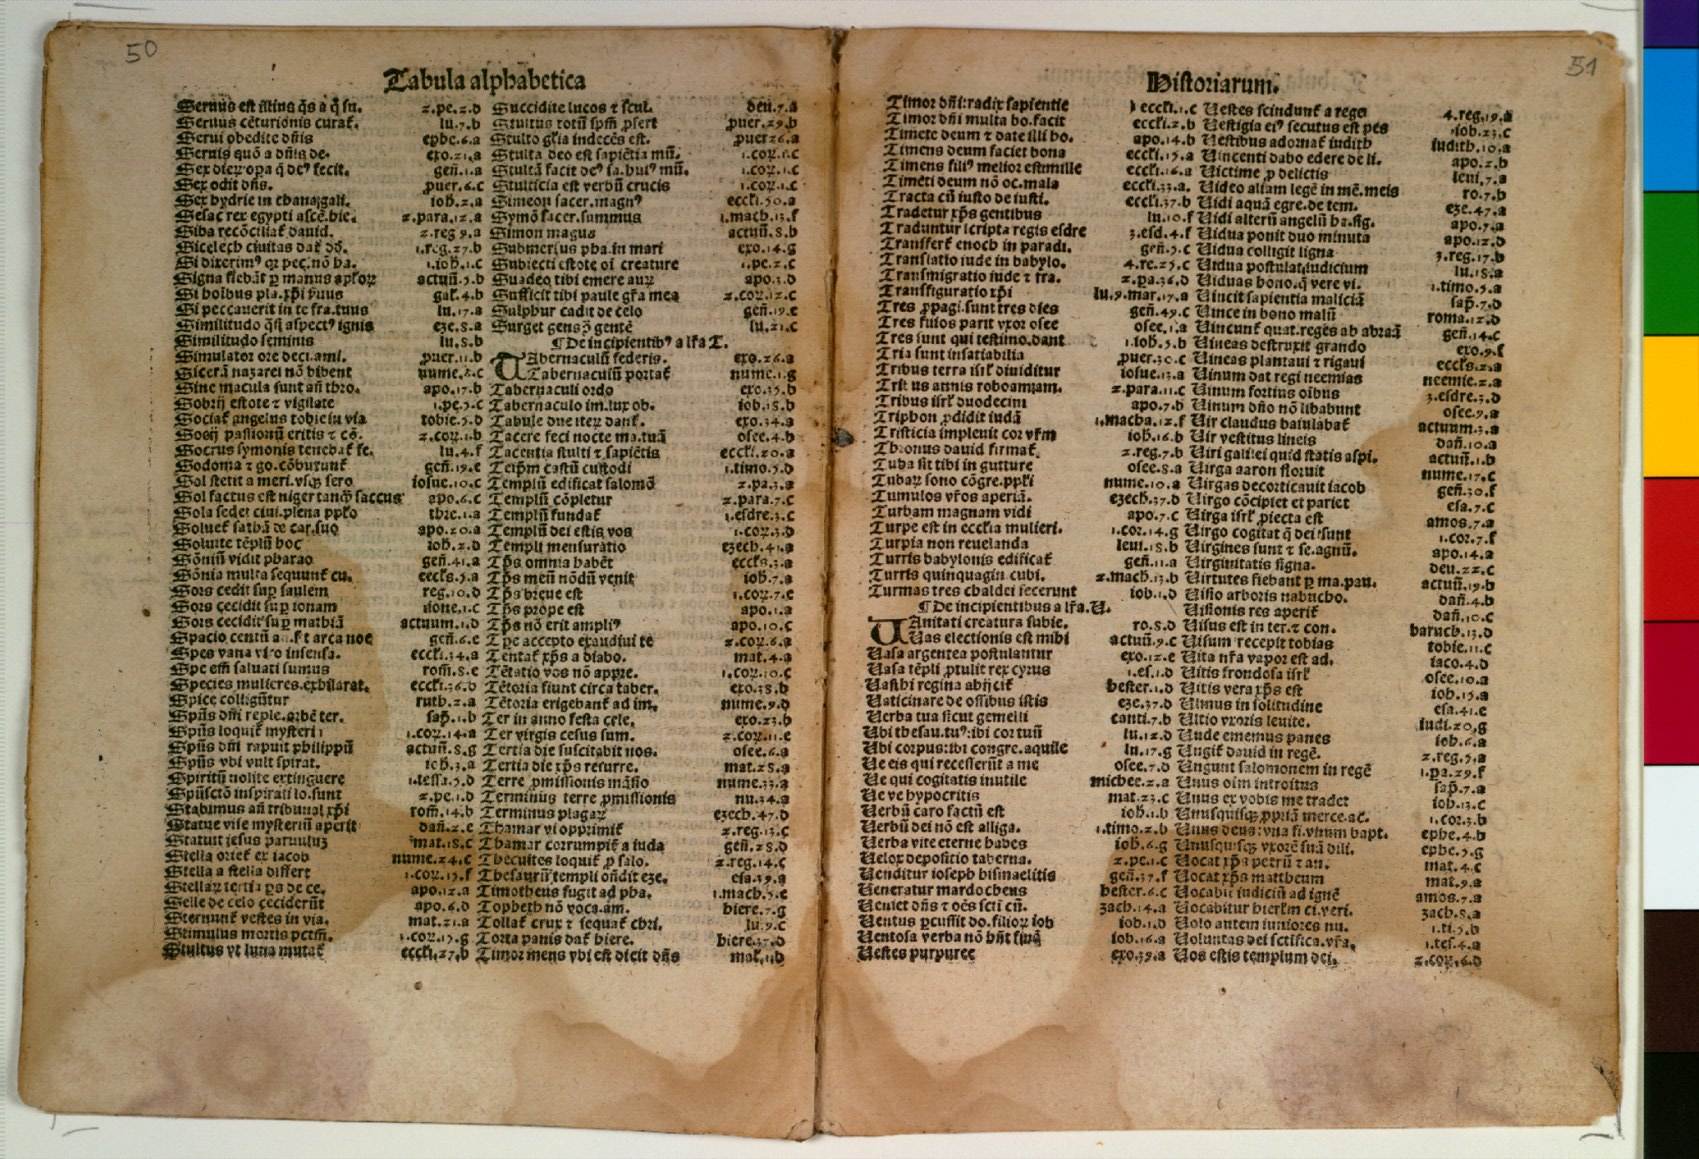 50
Tabula alphabetica
Seruus est illius q̄s a q̄ su. 2.pe.2.d
Seruus cēturionis curat̄. lu.7.b
Serui obedite dn̄is ephe.6.a
Seruis quō a dn̄is de. exo.21.a
Sex dieꝝ opa q̄ deꝰ fecit. gen̄.1.a
Sex odit dn̄s. puer.6.c
Sex hydrie in chana gali. ioh.2.a
Sesac rex egypti ascē.hie. 2.para.12.a
Siba recōciliat̄ dauid. 2.reg 9.a
Sicelech ciuitas dat̄ dd̄. 1.reg.27.b
Si dixerimꝰ qꝛ pec.nō ha. 1.ioh̄.1.c
Signa fiebāt ꝑ manus apl̄oꝝ actuū.5.b
Si hoībus pla.xp̄i seruus gal̄.4.b
Si peccauerit in te fra.tuus lu.17.a
Similitudo q̄si aspectꝰ ignis eze.8.a
Similitudo seminis lu.8.b
Simulator ore deci.ami. puer.11.b
Sicerā nazarei nō bibent nume.6.c
Sine macula sunt an̄ thro. apo.17.b
Sobrij estote ⁊ vigilate 1.pe.5.c
Sociat̄ angelus tobie in via tobie.5.d
Socij passionū eritis ⁊ cō. 2.coꝝ.1.b
Socrus symonis tenebat̄ fe. lu.4.f
Sodoma ⁊ go.cōburunt̄ gen̄.19.e
Sol stetit a meri.vsqꝫ sero iosue.10.c
Sol factus est niger tanq̄ saccus apo.6.c
Sola sedet ciui.plena pp̄lo thre.1.a
Soluet̄ sathā de car.suo apo.20.a
Soluite tēplū hoc ioh̄.2.d
Sōniū vidit pharao gen̄.41.a
Sōnia multa sequunt̄ cu. eccl̄s.5.a
Sors cedit suꝑ saulem reg.10.d
Sors cecidit suꝑ ionam ione.1.c
Sors cecidit suꝑ mathiā actuum.1.d
Spacio centū an̄.f̄t arca noe gen̄.6.e
Spes vana viro insensa. eccl̄i.34.a
Spe em̄ saluati sumus rom̄.8.e
Species mulieres.exhilarat. eccl̄i.36.d
Spice colligūtur ruth.2.a
Sp̄us dn̄i reple.orbē ter. sap̄.1.b
Sp̄us loquit̄ mysteri 1.coꝝ.14.a
Sp̄us dn̄i rapuit philippū actuū.8.g
Sp̄us vbi vult spirat. ioh̄.3.a
Spiritū nolite extinguere 1.tess.5.d
Sp̄usctō inspirati lo.sunt 2.pe.1.d
Stabimus an̄ tribunal xp̄i rom̄.14.b
Statue vise mysteriū aperit dan̄.2.e
Statuit iesus paruulū mat.18.c
Stella oriet̄ ex iacob nume.24.c
Stella a stella differt 1.coꝝ.15.f
Stellaꝝ tertia ꝑs de ce. apo.12.a
Stelle de celo ceciderūt apo.6.d
Sternunt̄ vestes in via. mat.21.a
Stimulus mortis pctm̄. 1.coꝝ.15.g
Stultus vt luna mutat̄ eccl̄i.27.b
Succidite lucos ⁊ scul. deu.7.a
Stultus totū sp̄m ꝓfert puer.29.b
Stulto gl̄ia indecēs est. puer26.a
Stulta deo est sapiētia mū. 1.coꝝ.1.c
Stultā facit deꝰ sa.huiꝰ mū. 1.coꝝ.1.c
Stulticia est verbū crucis 1.coꝝ.1.c
Simeon sacer.magnꝰ eccl̄i.50.a
Symō sacer.summus 1.mach.13.f
Simon magus actuū.8.b
Submersus pha.in mari exo.14.g
Subiecti estote oī creature 1.pe.2.c
Suadeo tibi emere auꝝ apo.3.d
Sufficit tibi paule gr̄a mea 2.coꝝ.12.c
Sulphur cadit de celo gen̄.19.e
Surget gens ꝯ̄ gentē lu.21.c
¶ De incipientibꝰ a lr̄a T.
TAbernaculū federis. exo.26.a
Tabernaculū portat̄ nume.1.g
Tabernaculi ordo exo.35.b
Tabernaculo im.lux ob. ioh.18.b
Tabule due iteꝝ dant̄. exo.34.a
Tacere feci nocte ma.tuā osee.4.b
Tacentia stulti ⁊ sapiētis eccl̄i.20.a
Teip̄m castū custodi 1.timo.5.d
Templū edificat salomō 2.pa.3.a
Templū cōpletur 2.para.7.c
Templū fundat̄ 1.esdre.3.c
Templū dei estis vos 1.coꝝ.3.d
Templi mensuratio ezech.41.a
Tp̄s omnia habēt eccl̄s.3.a
Tp̄s meū nōdū venit ioh̄.7.a
Tp̄s breue est 1.coꝝ.7.e
Tp̄s prope est apo.1.a
Tp̄s nō erit ampliꝰ apo.10.c
Tp̄e accepto exaudiui te 2.coꝝ.6.a
Tentat̄ xp̄s a diabo. mat.4.a
Tētatio vos nō appre. 1.coꝝ.10.c
Tētoria fiunt circa taber. exo.38.b
Tētoria erigebant̄ ad im. nume.9.d
Ter in anno festa cele. exo.23.b
Ter virgis cesus sum. 2.coꝝ.11.e
Tertia die suscitabit nos. osee.6.a
Tertia die xp̄s resurre. mat.28.a
Terre ꝓmissionis māsio nume.33.a
Terminus terre ꝓmissionis nu.34.a
Terminus plagaꝝ ezech.47.d
Thamar vi opprimit̄ 2.reg.13.c
Thamar corrumpit̄ a iuda gen̄.28.d
Thecuites loquit̄ ꝓ salo. 2.reg.14.c
Thesaurū templi on̄dit eze. esa.39.a
Timotheus fugit ad pha. 1.mach.5.e
Topheth nō voca.am. hiere.7.g
Tollat̄ crux ⁊ sequat̄ chri. lu.9.c
Torta panis dat̄ hiere. hiere.37.d
Timor meus vbi est dicit dn̄s mal.1.b
51
Historiarum.
Timor dn̄i:radix sapientie eccl̄i.1.c
Timor dn̄i multa bo.facit eccl̄i.2.b
Timete deum ⁊ date illi ho. apo.14.b
Timens deum faciet bona eccl̄i.15.a
Timens filiꝰ melior estimille eccl̄i.16.a
Timēti deum nō oc.mala eccl̄i.33.a.
Tracta cū iusto de iusti. eccl̄i.37.b
Tradetur xp̄s gentibus lu.10.f
Traduntur scripta regis esdre 3.esd.4.f
Transfert̄ enoch in paradi. gen̄.5.c
Translatio iude in babylo. 4.re.25.c
Transmigratio iude ⁊ fra. 2.pa.36.d
Transfiguratio xp̄i lu.9.mar.17.a
Tres ꝓpagi.sunt tres dies gen̄.49.c
Tres filios parit vxor osee osee.1.a
Tres sunt qui testimo.dant 1.ioh̄.5.b
Tria sunt insatiabilia puer.30.c
Tribus terra isrl̄ diuiditur iosue.13.a
Tribus annis roboam am. 2.para.11.c
Tribus isrl̄ duodecim apo.7.b
Triphon ꝓdidit iudā 1.macha.12.f
Tristicia impleuit cor vr̄m ioh̄.16.b
Thronus dauid firmat̄. 2.reg.7.b
Tuba sit tibi in gutture osee.8.a
Tubaꝝ sono cōgre.pp̄li nume.10.a
Tumulos vr̄os aperiā. ezech.37.d
Turbam magnam vidi apo.7.c
Turpe est in eccl̄ia mulieri. 1.coꝝ.14.g
Turpia non reuelanda leui.18.b
Turris babylonis edificat̄ gen̄.11.a
Turris quinquagin cubi. 2.mach.13.b
Turmas tres chaldei fecerunt iob.1.d
¶ De incipientibus a lr̄a.U.
UAnitati creatura subie. ro.8.d
Uas electionis est mihi actuū.9.c
Uasa argentea postulantur exo.12.e
Uasa tēpli ꝓtulit rex cyrus 1.es.1.d
Uasthi regina abijcit̄ hester.1.d
Uaticinare de ossibus istis eze.37.d
Uerba tua sicut gemelli canti.7.b
Ubi thesau.tuꝰ:ibi cor tuū lu.12.d
Ubi corpus:ibi congre.aquile lu.17.g
Ue eis qui recesserūt a me osee.7.d
Ue qui cogitatis inutile michee.2.a
Ue ve hypocritis mat.23.c
Uerbū caro factū est ioh̄.1.b
Uerbū dei nō est alliga. 1.timo.2.b
Uerba vite eterne habes ioh̄.6.g
Uelox depositio taberna. 2.pe.1.c
Uenditur ioseph hismaelitis gen̄.37.f
Ueneratur mardocheus hester.6.c
Ueniet dn̄s ⁊ oēs scti cū. zach.14.a
Uentus ꝑcussit do.filioꝝ iob iob.1.d
Uentosa verba nō hn̄t finē iob.16.a
Uestes purpuree exo.39.a
Uestes scindunt̄ a rege 4.reg.19.a
Uestigia eiꝰ secutus est pes iob.23.c
Uestibus adornat̄ iudith iudith.10.a
Uincenti dabo edere de li. apo.2.b
Uictime ꝓ delictis leui.7.a
Uideo aliam legē in mē.meis ro.7.b
Uidi aquā egre.de tem. eze.47.a
Uidi alterū angelū ha.sig. apo.7.a
Uidua ponit duo minuta apo.12.d
Uidua colligit ligna 3.reg.17.b
Uidua postulat iudicium lu.18.a
Uiduas hono.q̄ vere vi. 1.timo.5.a
Uincit sapientia maliciā sap̄.7.d
Uince in bono malū roma.12.d
Uincunt̄ quat.reges ab abraā gen̄.14.c
Uineas destruxit grando exo.9.f
Uineas plantaui ⁊ rigaui eccl̄s.2.a
Uinum dat regi neemias neemie.2.a
Uinum fortius oībus 3.esdre.3.d
Uinum dn̄o nō libabunt osee.9.a
Uir claudus baiulabat̄ actuum.3.a
Uir vestitus lineis dan̄.10.a
Uiri galilei quid statis aspi. actuū.1.b
Uirga aaron floruit nume.17.c
Uirgas decorticauit iacob gen̄.30.f
Uirgo cōcipiet et pariet esa.7.c
Uirga isrl̄ ꝓiecta est amos.7.a
Uirgo cogitat q̄ dei sunt 1.coꝝ.7.f
Uirgines sunt ⁊ se.agnū. apo.14.a
Uirginitatis signa. deu.22.c
Uirtutes fiebant ꝑ ma.pau. actuū.19.b
Uisio arboris nabucho. dan̄.4.b
Uisionis res aperit̄ dan̄.10.c
Uisus est in ter.⁊ con. baruch.13.d
Uisum recepit tobias tobie.11.c
Uita nr̄a vapor est ad. iaco.4.d
Uitis frondosa isrl̄ osee.10.a
Uitis vera xp̄s est ioh̄.15.a
Ulmus in solitudine esa.41.e
Ultio vxoris leuite. iudi.20.g
Unde ememus panes ioh̄.6.a
Ungit̄ dauid in regē. 2.reg.5.a
Ungunt salomonem in regē 1.pa.29.f
Unus oīm introitus sap̄.7.a
Unus ex vobis me tradet ioh̄.13.c
Unusquisqꝫ ꝓpriā merce.ac. 1.cor.3.b
Unus deus:vna fi.vnum bapt. ephe.4.b
Unusquisqꝫ vxorē suā dili. ephe.5.g
Uocat xp̄s petrū ⁊ an. mat.4.c
Uocat xp̄s mattheum mat.9.a
Uocabit iudiciū ad ignē amos.7.a
Uocabitur hierl̄m ci.veri. zach.8.a
Uolo autem iuniores nu. 1.ti.5.b
Uoluntas dei sctifica.vr̄a. 1.tes.4.a
Uos estis templum dei. 2.coꝝ.6.d